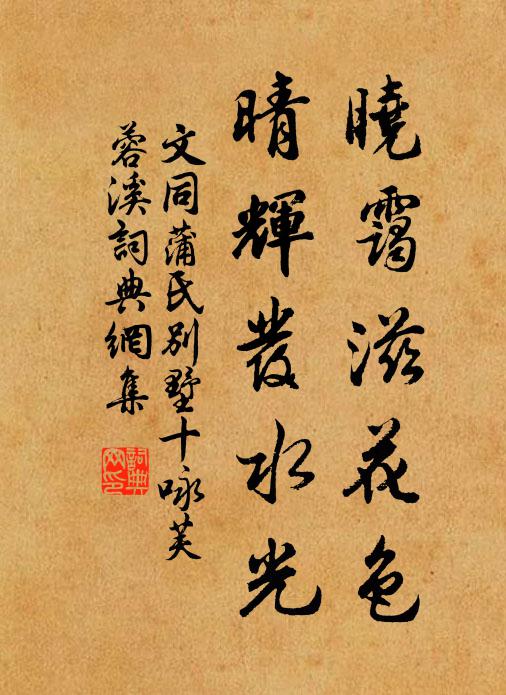 曉靄滋花色
晴輝發水光
文同蒲氏別墅十咏芙
蓉溪詞典網集
詞典網印